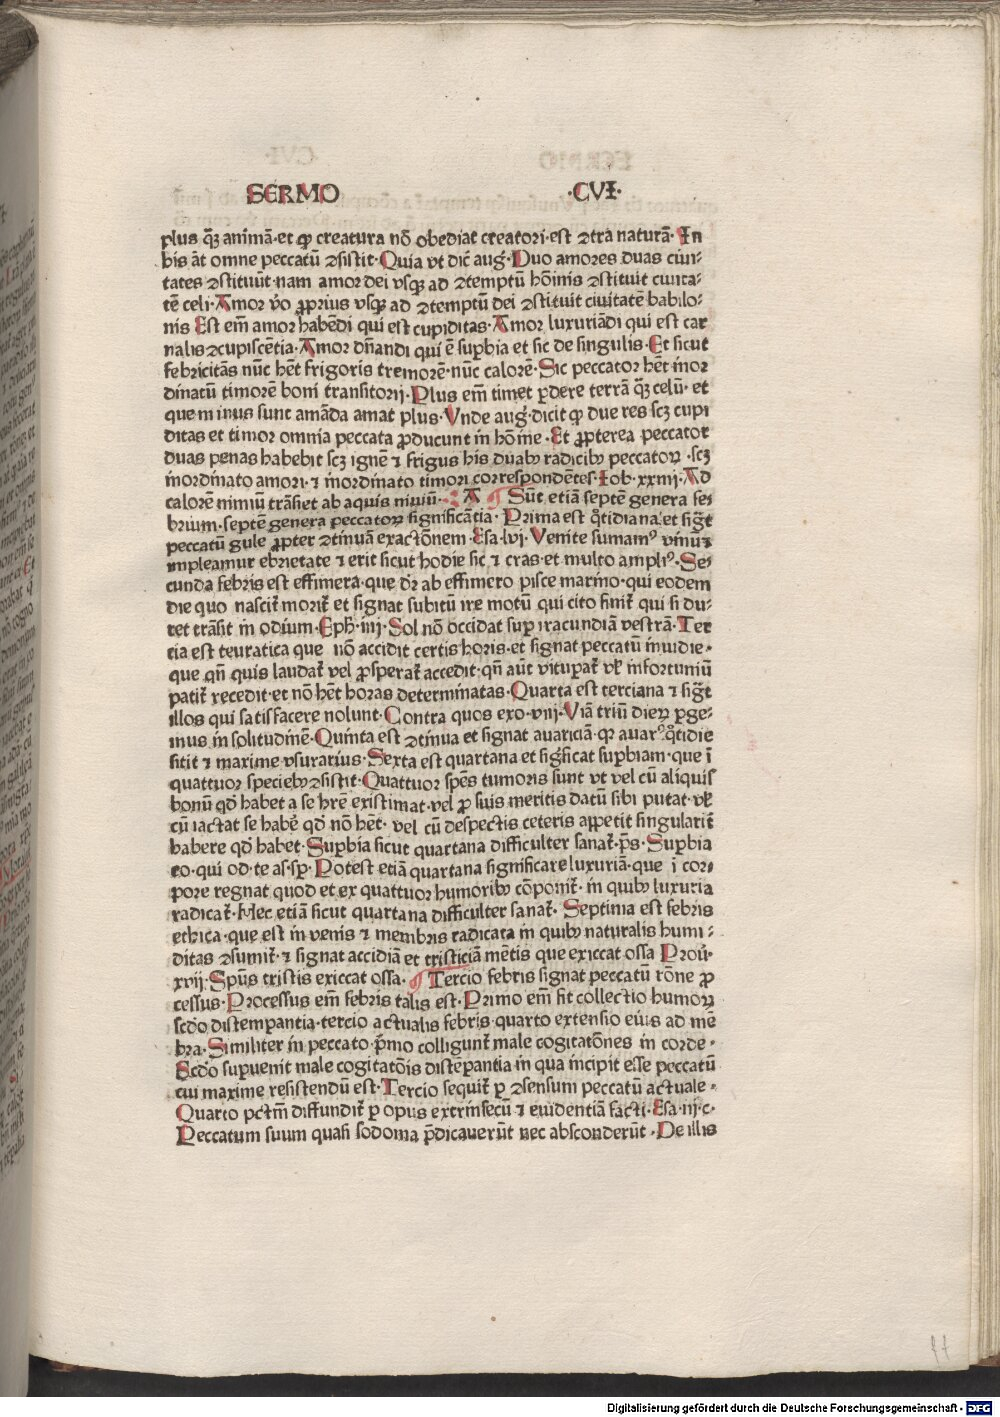 SERMO ·CVI·
plus q̃ꝫ animã·et ꝙ creatura nõ obediat creatori·est ꝯtra naturã·In
his ãt omne peccatũ ꝯsistit·Quia vt dic̃ aug̃·Duo amores duas ciui-
tates ꝯstituũt·nam amor dei vsqꝫ ad ꝯtemptũ hoĩnis ꝯstituit ciuita-
tẽ celi·Amor ṽo ꝓprius vsqꝫ ad ꝯtemptũ dei ꝯstituit ciuitatẽ babilo-
nis Est em̃ amor habẽdi qui est cupiditas·Amor luxuriãdi qui est car
nalis ꝯcupiscẽtia·Amor dñandi qui ẽ suꝑbia et sic de singulis·Et sicut
febricitãs nũc hẽt frigoris tremorẽ·nũc calorẽ·Sic peccator hẽt inor
dinatũ timorẽ boni transitorij·Plus em̃ timet ꝑdere terrã q̃ꝫ celũ·et
que minus sunt amãda amat plus·Vnde aug̃·dicit ꝙ due res scꝫ cupi
ditas et timor omnia peccata ꝓducunt in hoĩne·Et ꝓpterea peccator
duas penas habebit scꝫ ignẽ ⁊ frigus his duabꝫ radicibꝫ peccatoꝝ·scꝫ
inordinato amori·⁊ inordinato timori correspondẽtes·Iob·xxiiij·Ad
calorẽ nimiũ trãsiet ab aquis niuiũ·: A ¶ Sũt etiã septẽ genera fe-
brium·septẽ genera peccatoꝝ significãtia·Prima est q̃tidiana·et sig̃t
peccatũ gule ꝓpter ꝯtinuã exactõnem·Esa·lvi·Venite sumamꝰ vinũ ⁊
impleamur ebrietate ⁊ erit sicut hodie sic ⁊ cras·et multo ampliꝰ·Se-
cunda febris est effimera·que dr̃ ab effimero pisce marino·qui eodem
die quo nascit̃ morit̃ et signat subitũ ire motũ qui cito finit̃ qui si du-
ret trãsit in odium·Eph̃·iiij·Sol nõ occidat suꝑ iracundiã vestrã·Ter
cia est teuratica que nõ accidit certis horis·et signat peccatũ inuidie·
que qñ quis laudat̃ vel ꝓsperat̃ accedit·qñ aũt vituꝑat̃ vl̃ infortuniũ
patit̃ recedit·et nõ hẽt horas determinatas·Quarta est terciana ⁊ sig̃t
illos qui satisfacere nolunt·Contra quos exo·viij·Viã triũ dieꝝ ꝑge-
mus in solitudinẽ·Quinta est ꝯtinua et signat auariciã·qꝛ auarꝰ q̃tidie
sitit ⁊ maxime vsurarius·Sexta est quartana et sig̃ficat suꝑbiam·que ĩ
quattuor speciebꝫ ꝯsistit·Quattuor spẽs tumoris sunt vt vel cũ aliquis
bonũ qd̃ habet a se hr̃e existimat·vel ꝓ suis meritis datũ sibi putat·vl̃
cũ iactat se habẽ qd̃ nõ hẽt·vel cũ despectis ceteris appetit singularit̃
habere qd̃ habet·Suꝑbia sicut quartana difficulter sanat̃·ps̃·Suꝑbia
eo·qui od·te as·sꝑ·Potest etiã quartana significare luxuriã·que ĩ cor-
pore regnat quod et ex quattuor humoribꝫ cõponit̃·in quibꝫ luxuria
radicat̃·Hec etiã sicut quartana difficulter sanat̃·Septima est febris
ethica·que est in venis ⁊ membris radicata in quibꝫ naturalis humi-
ditas ꝯsumit̃·⁊ signat accidiã et tristiciã mẽtis que exiccat ossa Prou̾·
xvij·Spũs tristis exiccat ossa·¶ Tercio febris signat peccatũ rõne ꝓ
cessus·Processus em̃ febris talis est·Primo em̃ fit collectio humoꝝ
scd̃o distemperantia·tercio actualis febris·quarto extensio eius ad mẽ
bra·Similiter in peccato·p̃mo colligunt̃ male cogitatõnes in corde·
Scd̃o suꝑuenit male cogitatõis disteperantia·in qua incipit esse peccatũ
cui maxime resistendũ est·Tercio sequit̃ ꝑ ꝯsensum peccatũ actuale·
Quarto pctm̃ diffundit̃ ꝑ opus extrinsecũ ⁊ euidentiã facti·Esa·iij·c·
Peccatum suum quasi sodoma p̃dicauerũt nec absconderũt·De illis
Digitalisierung gefördert durch die Deutsche Forschungsgemeinschaft - DFG